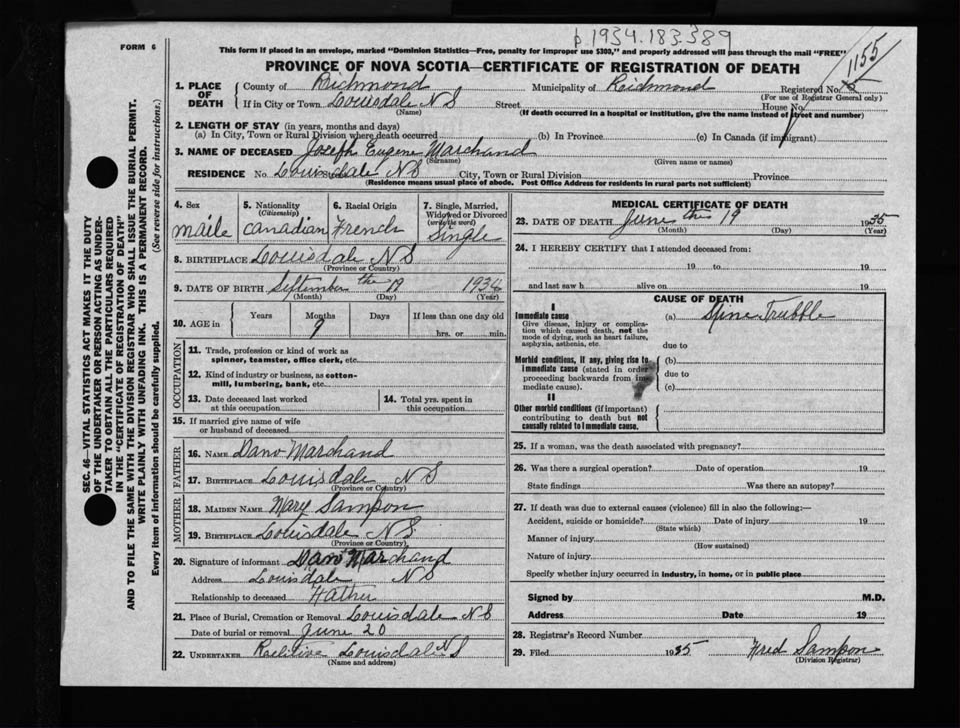 p 1934.183.389
FORM 6
This form if placed in an envelope, marked "Dominion Statistics—Free, penalty for improper use $300," and properly addressed will pass through the mail "FREE"
1155
PROVINCE OF NOVA SCOTIA—CERTIFICATE OF REGISTRATION OF DEATH
1. PLACE OF DEATH County of Richmond Municipality of Richmond Registered No.
(For use of Registrar General only)
If in City or Town Louisdale N S Street House No.
(Name) (If death occurred in a hospital or institution, give the name instead of street and number)
2. LENGTH OF STAY (in years, months and days)
(a) In City, Town or Rural Division where death occurred (b) In Province (c) In Canada (if immigrant)
3. NAME OF DECEASED Joseph Eugene Marchand
(Surname) (Given name or names)
RESIDENCE No. Louisdale NS Street City, Town or Rural Division Province
(Residence means usual place of abode. Post Office Address for residents in rural parts not sufficient)
4. Sex 5. Nationality (Citizenship) 6. Racial Origin 7. Single, Married, Widowed or Divorced (write the word)
maile Canadian French Single
8. BIRTHPLACE Louisdale N S
(Province or Country)
9. DATE OF BIRTH September the 19 1934
(Month) (Day) (Year)
10. AGE in Years Months Days If less than one day old
9 hrs. or min.
OCCUPATION
11. Trade, profession or kind of work as spinner, teamster, office clerk, etc.
12. Kind of industry or business, as cotton-mill, lumbering, bank, etc.
13. Date deceased last worked at this occupation 14. Total yrs. spent in this occupation
15. If married give name of wife or husband of deceased
FATHER
16. NAME Marchand
17. BIRTHPLACE Louisdale N S
(Province or Country)
MOTHER
18. MAIDEN NAME Mary Sampon
19. BIRTHPLACE Louisdale N S
(Province or Country)
20. Signature of informant Marchand
Address Louisdale N S
Relationship to deceased Father
21. Place of Burial, Cremation or Removal Louisdale N S
Date of burial or removal June 20
22. UNDERTAKER Louisdale N S
(Name and address)
MEDICAL CERTIFICATE OF DEATH
23. DATE OF DEATH June the 19 1935
(Month) (Day) (Year)
24. I HEREBY CERTIFY that I attended deceased from:
19 to 19
and last saw h alive on 19
CAUSE OF DEATH
I
Immediate cause (a) Spine Trubble
Give disease, injury or complication which caused death, not the mode of dying, such as heart failure, asphyxia, asthenia, etc.
due to
Morbid conditions, if any, giving rise to immediate cause (stated in order proceeding backwards from immediate cause).
(b)
due to
(c)
II
Other morbid conditions (if important) contributing to death but not causally related to immediate cause.
25. If a woman, was the death associated with pregnancy?
26. Was there a surgical operation? Date of operation 19
State findings Was there an autopsy?
27. If death was due to external causes (violence) fill in also the following:—
Accident, suicide or homicide? Date of injury 19
(State which)
Manner of injury
(How sustained)
Nature of injury
Specify whether injury occurred in industry, in home, or in public place
Signed by M.D.
Address Date 19
28. Registrar's Record Number
29. Filed 1935 Fred Sampon
(Division Registrar)
SEC. 46—VITAL STATISTICS ACT MAKES IT THE DUTY
OF THE UNDERTAKER OR PERSON ACTING AS UNDER-
TAKER TO OBTAIN ALL THE PARTICULARS REQUIRED
IN THE "CERTIFICATE OF REGISTRATION OF DEATH"
AND TO FILE THE SAME WITH THE DIVISION REGISTRAR WHO SHALL ISSUE THE BURIAL PERMIT.
WRITE PLAINLY WITH UNFADING INK. THIS IS A PERMANENT RECORD.
Every item of information should be carefully supplied. (See reverse side for instructions.)